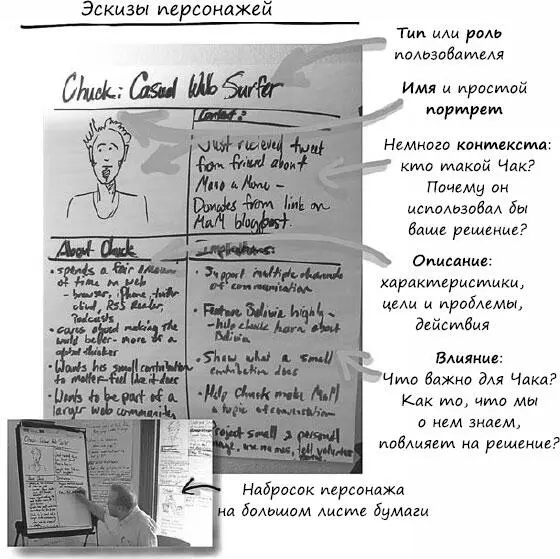 Эскизы персонажей
Тип или роль
пользователя
Имя и простой
портрет
Немного контекста:
кто такой Чак?
Почему он
использовал бы
ваше решение?
Описание:
характеристики,
цели и проблемы,
действия
Влияние:
Что важно для Чака?
Как то, что мы
о нем знаем,
повлияет на решение?
Набросок персонажа
на большом листе бумаги
Chuck: Casual Web Surfer
Context:
Just recieved tweet
from friend about
Mano a Mano -
Donates from link on
MaM blogpost.
About Chuck
• spends a fair amount
of time on web
- browser, iPhone, twitter
client, RSS Reader,
Podcasts
• cares about making the
world better - more of a
global thinker
• Wants his small contribution
to matter - feel like it does
• Wants to be part of a
larger web communities
Implications:
• Support multiple channels
of communication
• Feature Bolivia highly -
- help chuck learn about
Bolivia
• Show what a small
contribution does
• Help Chuck make MaM
a topic of conversation
Project small & personal
image, use names, tell volunteer
Chuck: Casual Web Surfer